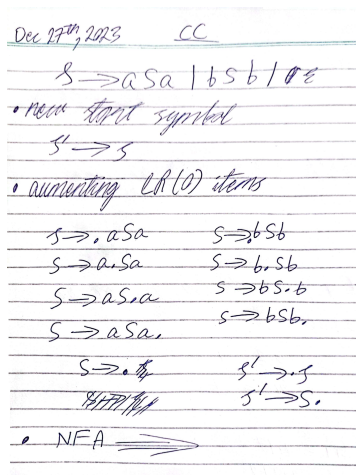 Dec 27th, 2023 CC
S → aSa | bSb | ε
• new start symbol
S' → S
• aumenting LR(0) items
S → . aSa S → . bSb
S → a . Sa S → b . Sb
S → aS . a S → bS . b
S → aSa . S → bSb .
S → . S' → . S
S' → S .
• NFA